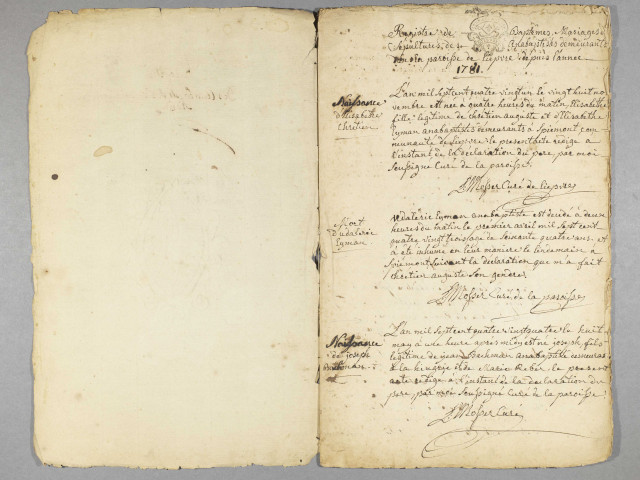 Registre de Baptêmes, Mariages &
Sepultures, de Anabaptistes demeurants
paroise de liepvre depuis l'annee
1781.
Naissance
d'Elisabethe
Chrétien
L'an mil sept cent quatre vingt un le vingt huit no
vembre est née à quatre heures du matin Elisabethe
fille légitime de chrétien auguste et d'Elisabethe
Eyman anabaptistes demeurants à Spiemont com-
munauté de liepvre le present acte redigé a
l'instant de la declaration du pere, par moi
soussigné Curé de la paroisse.
Mosser Curé de liepvre
Mort
Eyman
Eyman anabaptiste est decedé à deux
heures du matin le premier avril mil sept cent
quatre vingt trois agé de soixante quatre ans et
a été inhumé en leur maniere le lendemain a
Spiemont suivant la declaration que m'a fait
chretien auguste son gendre
Mosser Curé de la paroisse
Naissance
de joseph
L'an mil sept cent quatre vingt quatre le huit
may à une heure après midy est né joseph fils
légitime de jean anabaptiste demeurant
a la hingrie & de Marie Reber. le present
acte redigé a l'instant de la declaration du
pere, par moi soussigné Curé de la paroisse.
Mosser Curé